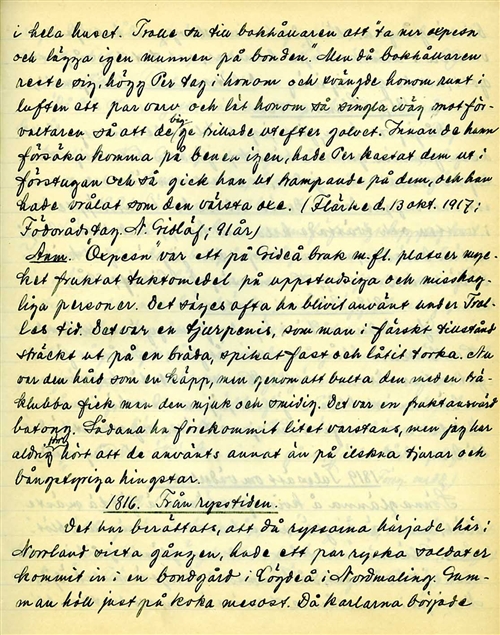 i hela huset. Trolle sa till bokhållaren att "ta ner oxpesn
och lägga igen munnen på bonden". Men då bokhållaren
reste sig, högg Per tag i honom och svängde honom runt i
luften ett par varv och lät honom så singla iväg mot för-
valtaren så att de bägge trillade utefter golvet. Innan de hann
försöka komma på benen igen, hade Per kastat dem ut i
förstugan och så gick han ut trampande på dem, och han
hade vrålat som den värsta oxe. (Flärke d. 13 okt. 1917;
Födorådstag. N. Gidlöf; 91 år)
Anm. "Oxpesn" var ett på Gideå bruk m.fl. platser myc-
ket fruktat tuktomedel på uppstudsiga och misshag-
liga personer. Det säges ofta ha blivit använt under Trol-
les tid. Det var en tjurpenis, som man i färskt tillstånd
sträckt ut på en bräda, spikat fast och låtit torka. Nu
var den hård som en käpp, men genom att bulta den med en trä-
klubba fick man den mjuk och smidig. Det var en fruktansvärd
batong. Sådana ha förekommit litet varstans, men jag har
aldrig hört att de använts annat än på ilskna tjurar och
bångstyriga hingstar.
1816. Från rysstiden.
Det har berättats, att då ryssarna härjade här i
Norrland sista gången, hade ett par ryska soldater
kommit in i en bondgård i Lögdeå i Nordmaling. Gum-
man höll just på koka mesost. Då karlarna började